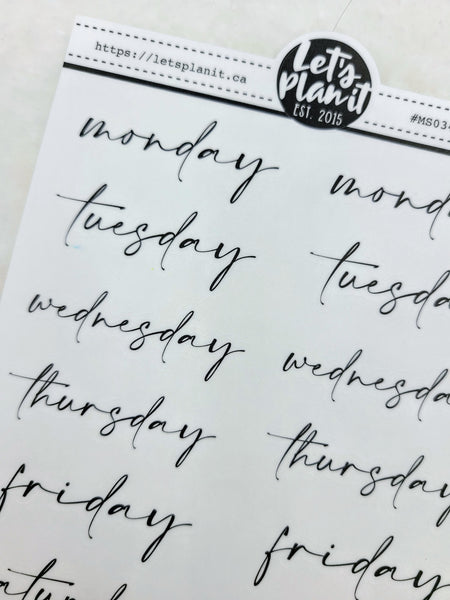 https://letsplanit.ca
Let's
Plan it
EST. 2015
#MS034
monday monday
tuesday tuesday
wednesday wednesday
thursday thursday
friday friday